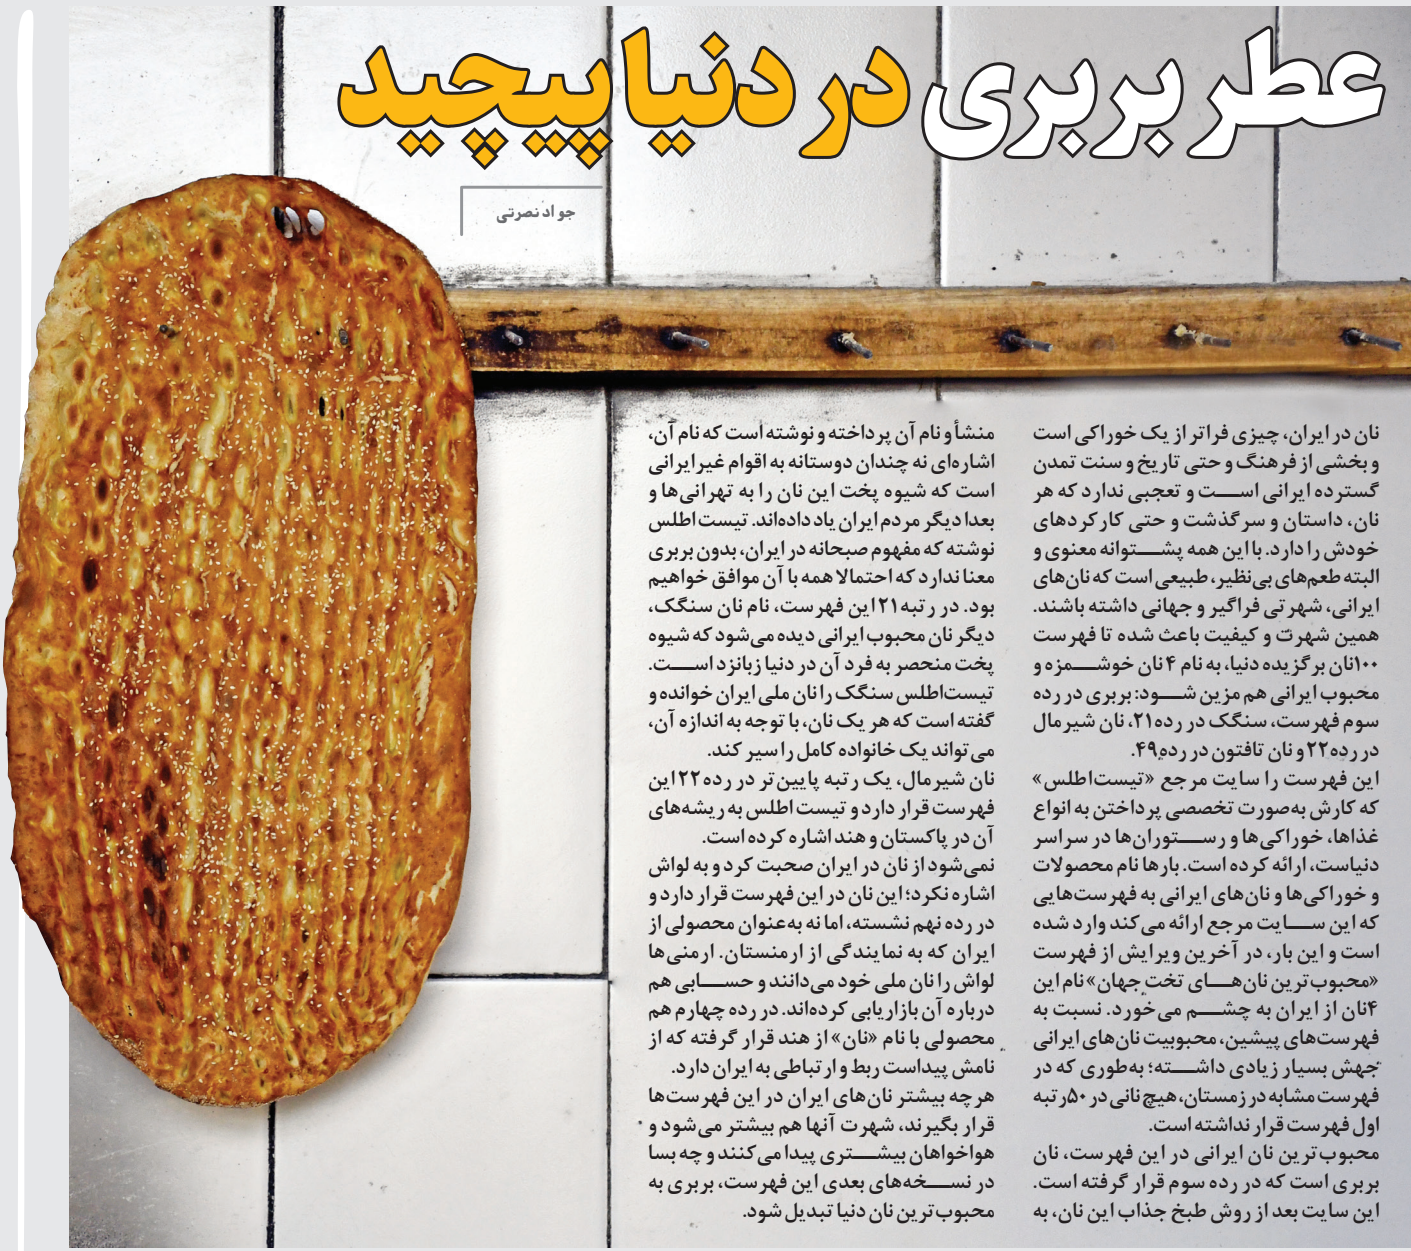 عطر بربری در دنیا پیچید
جواد نصرتی
نان در ایران، چیزی فراتر از یک خوراکی است
و بخشی از فرهنگ و حتی تاریخ و سنت تمدن
گسترده ایرانی اســت و تعجبی ندارد که هر
نان، داستان و سرگذشت و حتی کارکردهای
خودش را دارد. با این همه پشــتوانه معنوی و
البته طعم‌های بی‌نظیر، طبیعی است که نان‌های
ایرانی، شهرتی فراگیر و جهانی داشته باشند.
همین شهرت و کیفیت باعث شده تا فهرست
۱۰۰نان برگزیده دنیا، به نام ۴ نان خوشــمزه و
محبوب ایرانی هم مزین شــود: بربری در رده
سوم فهرست، سنگک در رده ۲۱، نان شیرمال
در رده۲۲ و نان تافتون در رده۴۹.
این فهرست را سایت مرجع «تیست‌اطلس»
که کارش به‌صورت تخصصی پرداختن به انواع
غذاها، خوراکی‌ها و رســتوران‌ها در سراسر
دنیاست، ارائه کرده است. بارها نام محصولات
و خوراکی‌ها و نان‌های ایرانی به فهرست‌هایی
که این ســایت مرجع ارائه می‌کند وارد شده
است و این بار، در آخرین ویرایش از فهرست
«محبوب‌ترین نان‌هــای تخت جهان» نام این
۴نان از ایران به چشــم می‌خورد. نسبت به
فهرست‌های پیشین، محبوبیت نان‌های ایرانی
جهش بسیار زیادی داشــته؛ به‌طوری که در
فهرست مشابه در زمستان، هیچ نانی در ۵۰رتبه
اول فهرست قرار نداشته است.
محبوب‌ترین نان ایرانی در این فهرست، نان
بربری است که در رده سوم قرار گرفته است.
این سایت بعد از روش طبخ جذاب این نان، به
منشأ و نام آن پرداخته و نوشته است که نام آن،
اشاره‌ای نه چندان دوستانه به اقوام غیرایرانی
است که شیوه پخت این نان را به تهرانی‌ها و
بعدا دیگر مردم ایران یاد داده‌اند. تیست اطلس
نوشته که مفهوم صبحانه در ایران، بدون بربری
معنا ندارد که احتمالا همه با آن موافق خواهیم
بود. در رتبه ۲۱ این فهرست، نام نان سنگک،
دیگر نان محبوب ایرانی دیده می‌شود که شیوه
پخت منحصر به فرد آن در دنیا زبانزد اســت.
تیست‌اطلس سنگک را نان ملی ایران خوانده و
گفته است که هر یک نان، با توجه به اندازه آن،
می‌تواند یک خانواده کامل را سیر کند.
نان شیرمال، یک رتبه پایین‌تر در رده ۲۲ این
فهرست قرار دارد و تیست اطلس به ریشه‌های
آن در پاکستان و هند اشاره کرده است.
نمی‌شود از نان در ایران صحبت کرد و به لواش
اشاره نکرد؛ این نان در این فهرست قرار دارد و
در رده نهم نشسته، اما نه به‌عنوان محصولی از
ایران که به نمایندگی از ارمنستان. ارمنی‌ها
لواش را نان ملی خود می‌دانند و حســابی هم
درباره آن بازاریابی کرده‌اند. در رده چهارم هم
محصولی با نام «نان» از هند قرار گرفته که از
نامش پیداست ربط و ارتباطی به ایران دارد.
هرچه بیشتر نان‌های ایران در این فهرست‌ها
قرار بگیرند، شهرت آنها هم بیشتر می‌شود و
هواخواهان بیشــتری پیدا می‌کنند و چه بسا
در نســخه‌های بعدی این فهرست، بربری به
محبوب‌ترین نان دنیا تبدیل شود.